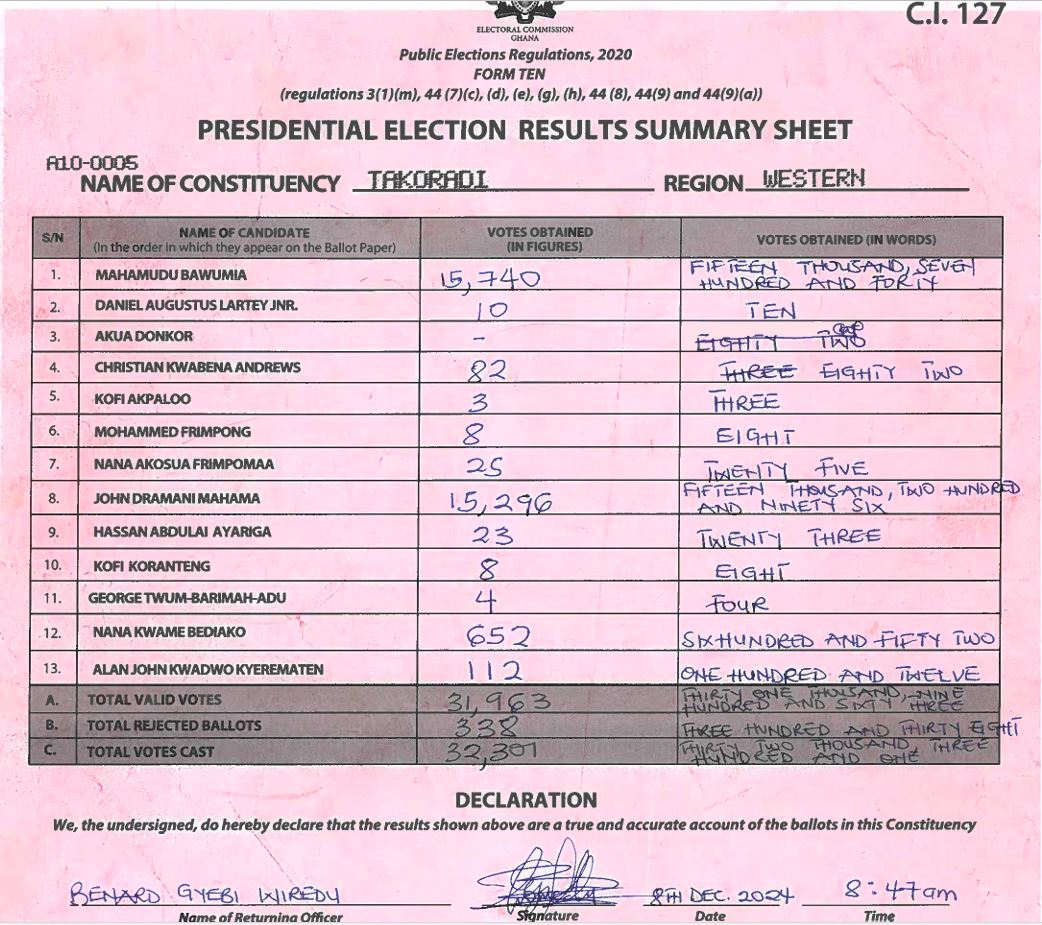 C.I. 127
ELECTORAL COMMISSION
GHANA
Public Elections Regulations, 2020
FORM TEN
(regulations 3(1)(m), 44 (7)(c), (d), (e), (g), (h), 44 (8), 44(9) and 44(9)(a))
PRESIDENTIAL ELECTION RESULTS SUMMARY SHEET
A10-0005
NAME OF CONSTITUENCY TAKORADI REGION WESTERN
S/N NAME OF CANDIDATE (In the order in which they appear on the Ballot Paper) VOTES OBTAINED (IN FIGURES) VOTES OBTAINED (IN WORDS)
1. MAHAMUDU BAWUMIA 15,740 FIFTEEN THOUSAND, SEVEN HUNDRED AND FORTY
2. DANIEL AUGUSTUS LARTEY JNR. 10 TEN
3. AKUA DONKOR - EIGHTY TWO
4. CHRISTIAN KWABENA ANDREWS 82 THREE EIGHTY TWO
5. KOFI AKPALOO 3 THREE
6. MOHAMMED FRIMPONG 8 EIGHT
7. NANA AKOSUA FRIMPOMAA 25 TWENTY FIVE
8. JOHN DRAMANI MAHAMA 15,296 FIFTEEN THOUSAND, TWO HUNDRED AND NINETY SIX
9. HASSAN ABDULAI AYARIGA 23 TWENTY THREE
10. KOFI KORANTENG 8 EIGHT
11. GEORGE TWUM-BARIMAH-ADU 4 FOUR
12. NANA KWAME BEDIAKO 652 SIX HUNDRED AND FIFTY TWO
13. ALAN JOHN KWADWO KYEREMATEN 112 ONE HUNDRED AND TWELVE
A. TOTAL VALID VOTES 31,963 THIRTY ONE THOUSAND, NINE HUNDRED AND SIXTY THREE
B. TOTAL REJECTED BALLOTS 338 THREE HUNDRED AND THIRTY EIGHT
C. TOTAL VOTES CAST 32,301 THIRTY TWO THOUSAND, THREE HUNDRED AND ONE
DECLARATION
We, the undersigned, do hereby declare that the results shown above are a true and accurate account of the ballots in this Constituency
BENARD GYEBI WIREDU 8TH DEC. 2024 8:47am
Name of Returning Officer Signature Date Time